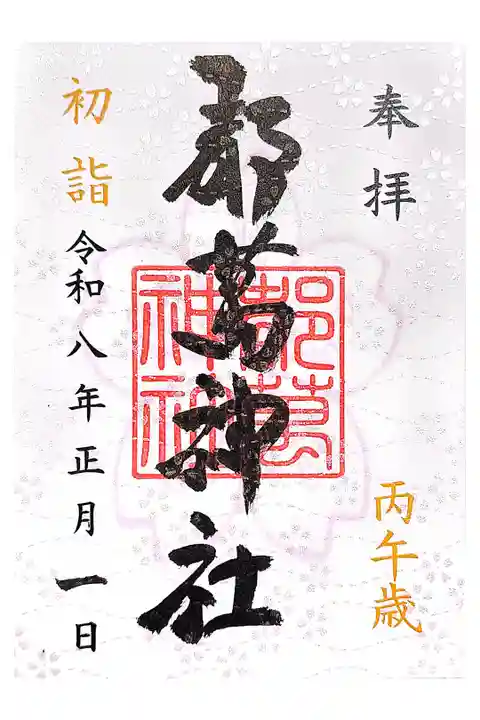 奉拝
丙午歳
都萬神社
都萬
神社
初詣
令和八年正月一日